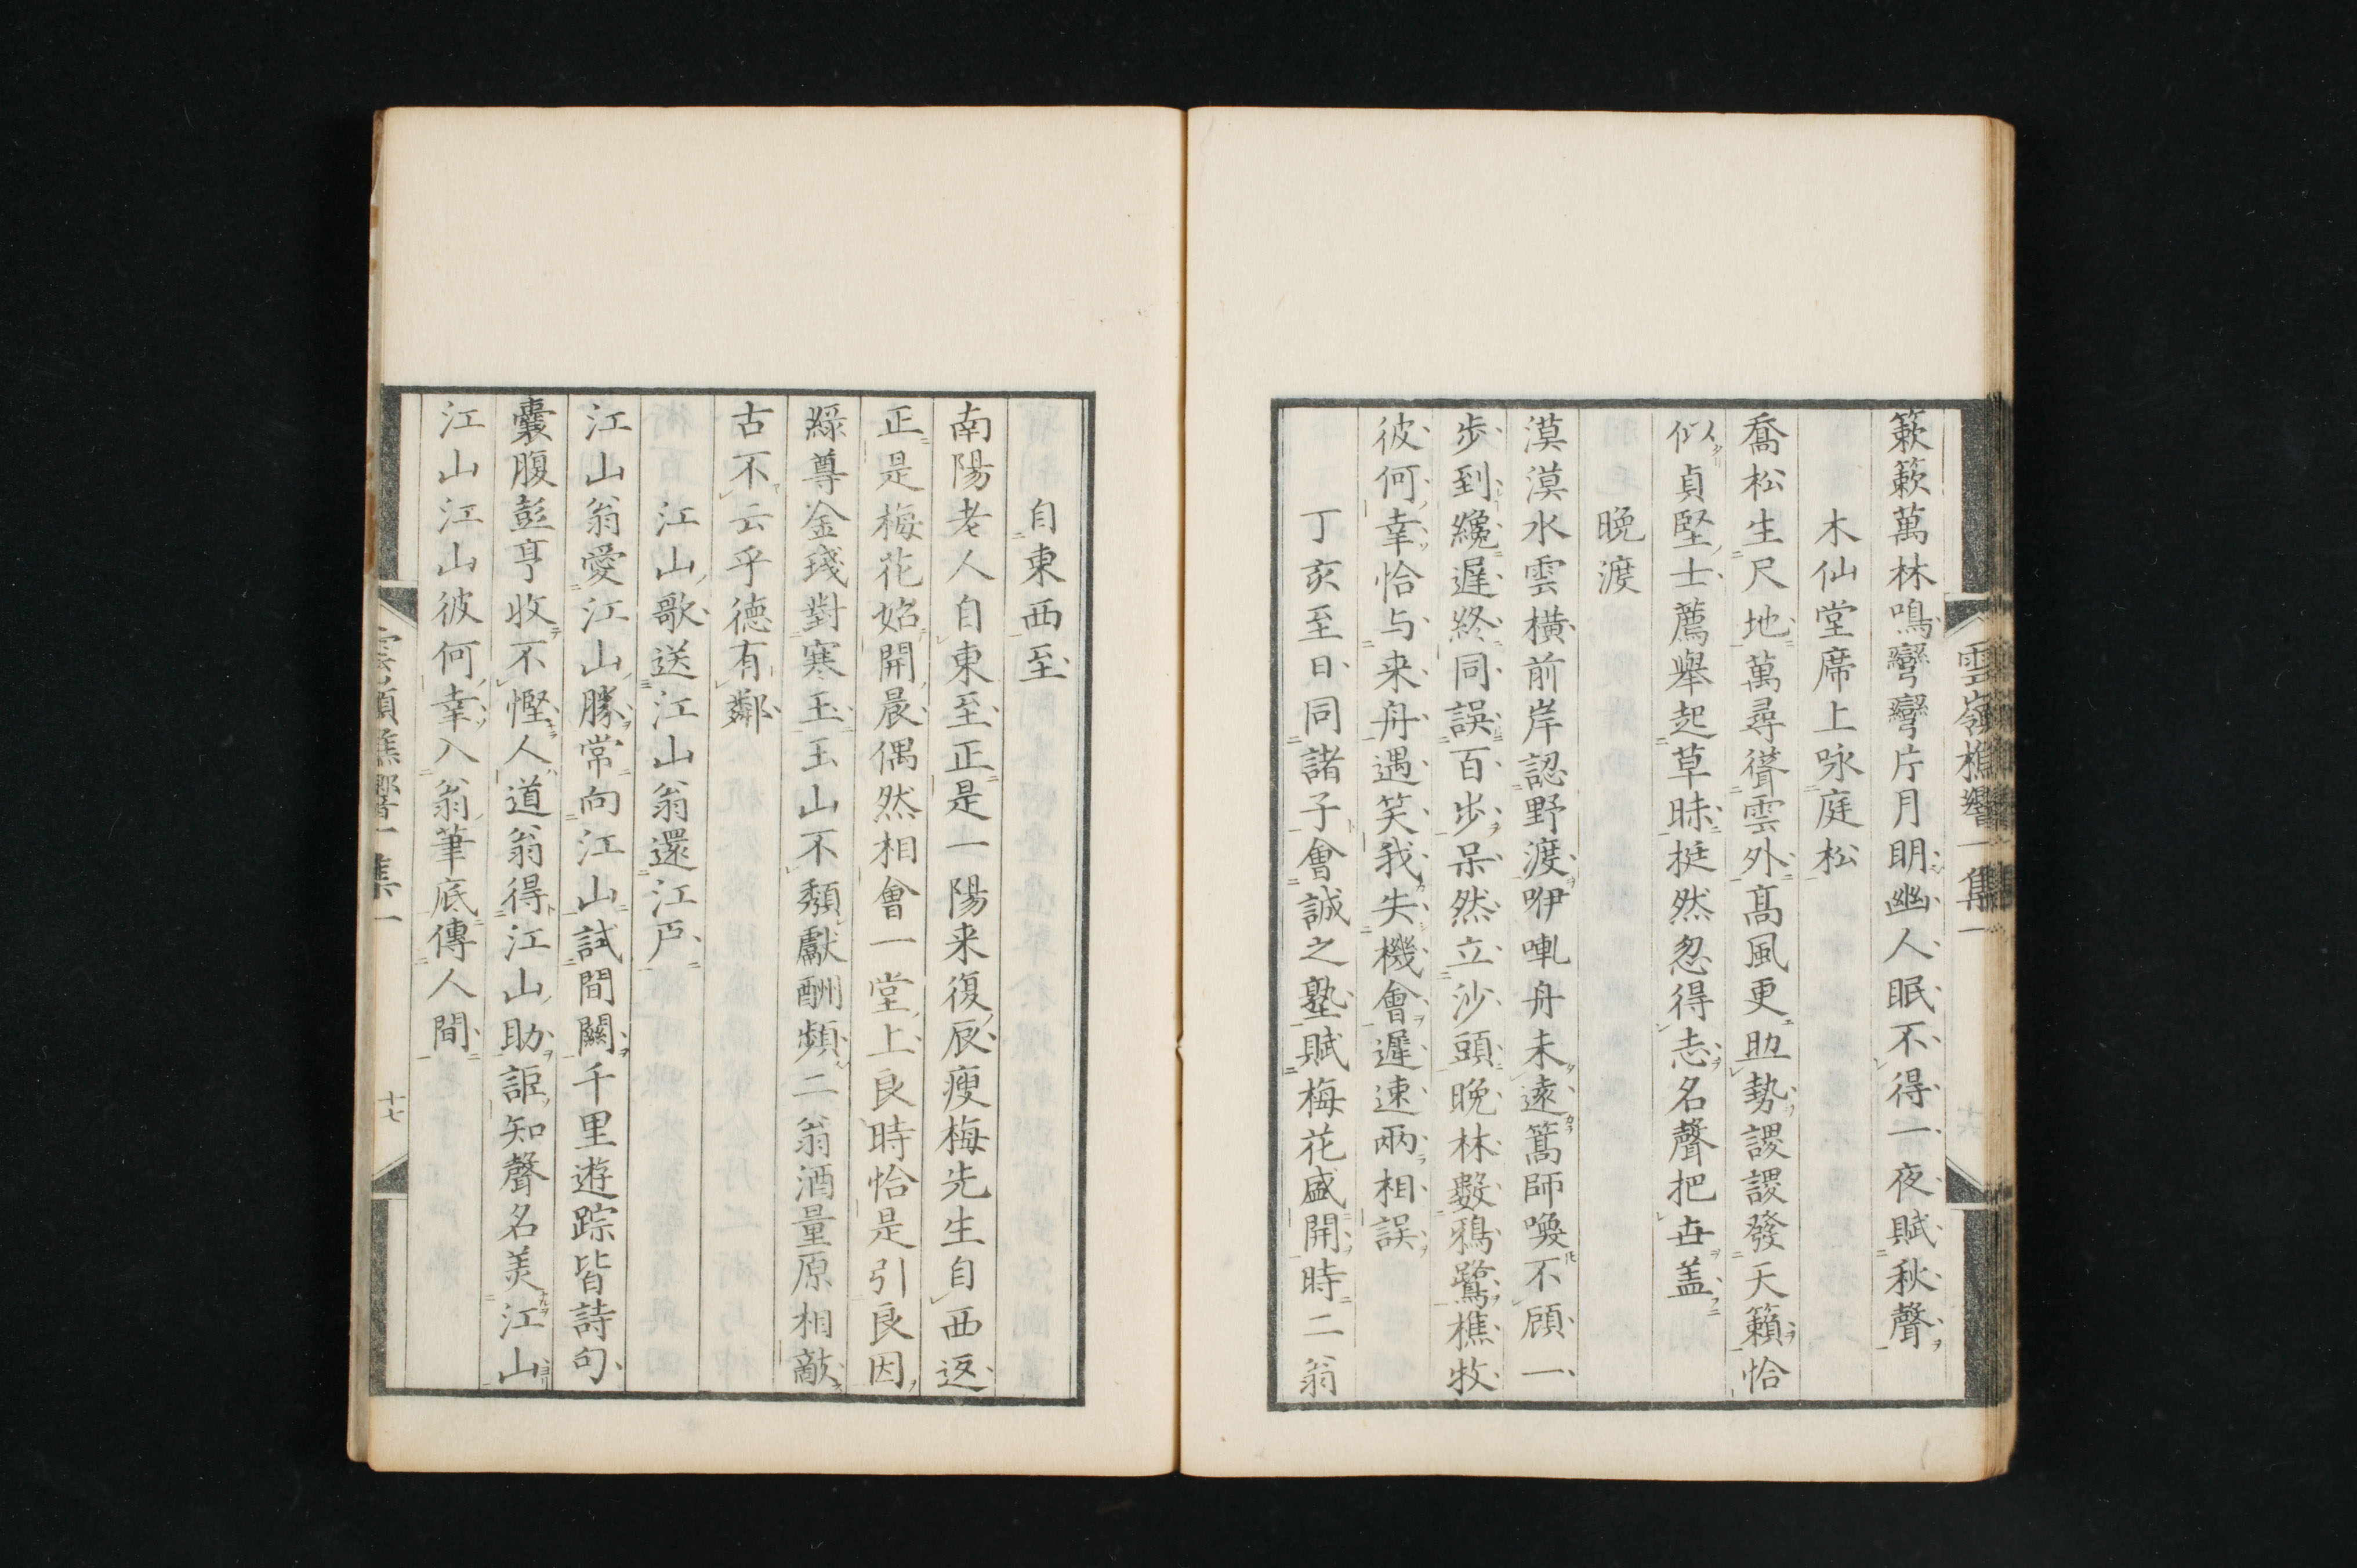 簌簌萬林鳴彎彎片月明幽人眠不得一夜賦秋聲
木仙堂席上咏庭松
喬松生尺地萬尋聳雲外高風更助勢謖謖發天籟恰
似貞堅士薦舉起草昧挺然忽得志名聲把世盖
晩渡
漠漠水雲橫前岸認野渡咿喥舟未遠篙師喚不顧一
歩到纔遲終同誤百歩呆然立沙頭晩林數鴉鷺樵牧
彼何幸恰与来舟遇笑我失機會遲速兩相誤
丁亥至日同諸子會誠之塾賦梅花盛開時二翁
雲嶺樵響一集一
自東西至
南陽老人自東至正是一陽来復辰瘦梅先生自西返
正是梅花始開晨偶然相會一堂上良時恰是引良因
綠尊金琖對寒玉玉山不頽獻酬頻二翁酒量原相敵
古不云乎德有鄰
江山歌送江山翁還江戸
江山翁愛江山勝常向江山試間關千里遊踪皆詩句
囊腹彭亨收不慳人道翁得江山助詎知聲名美江山
江山江山彼何幸入翁筆底傳人間
雲嶺樵響一集一
十七